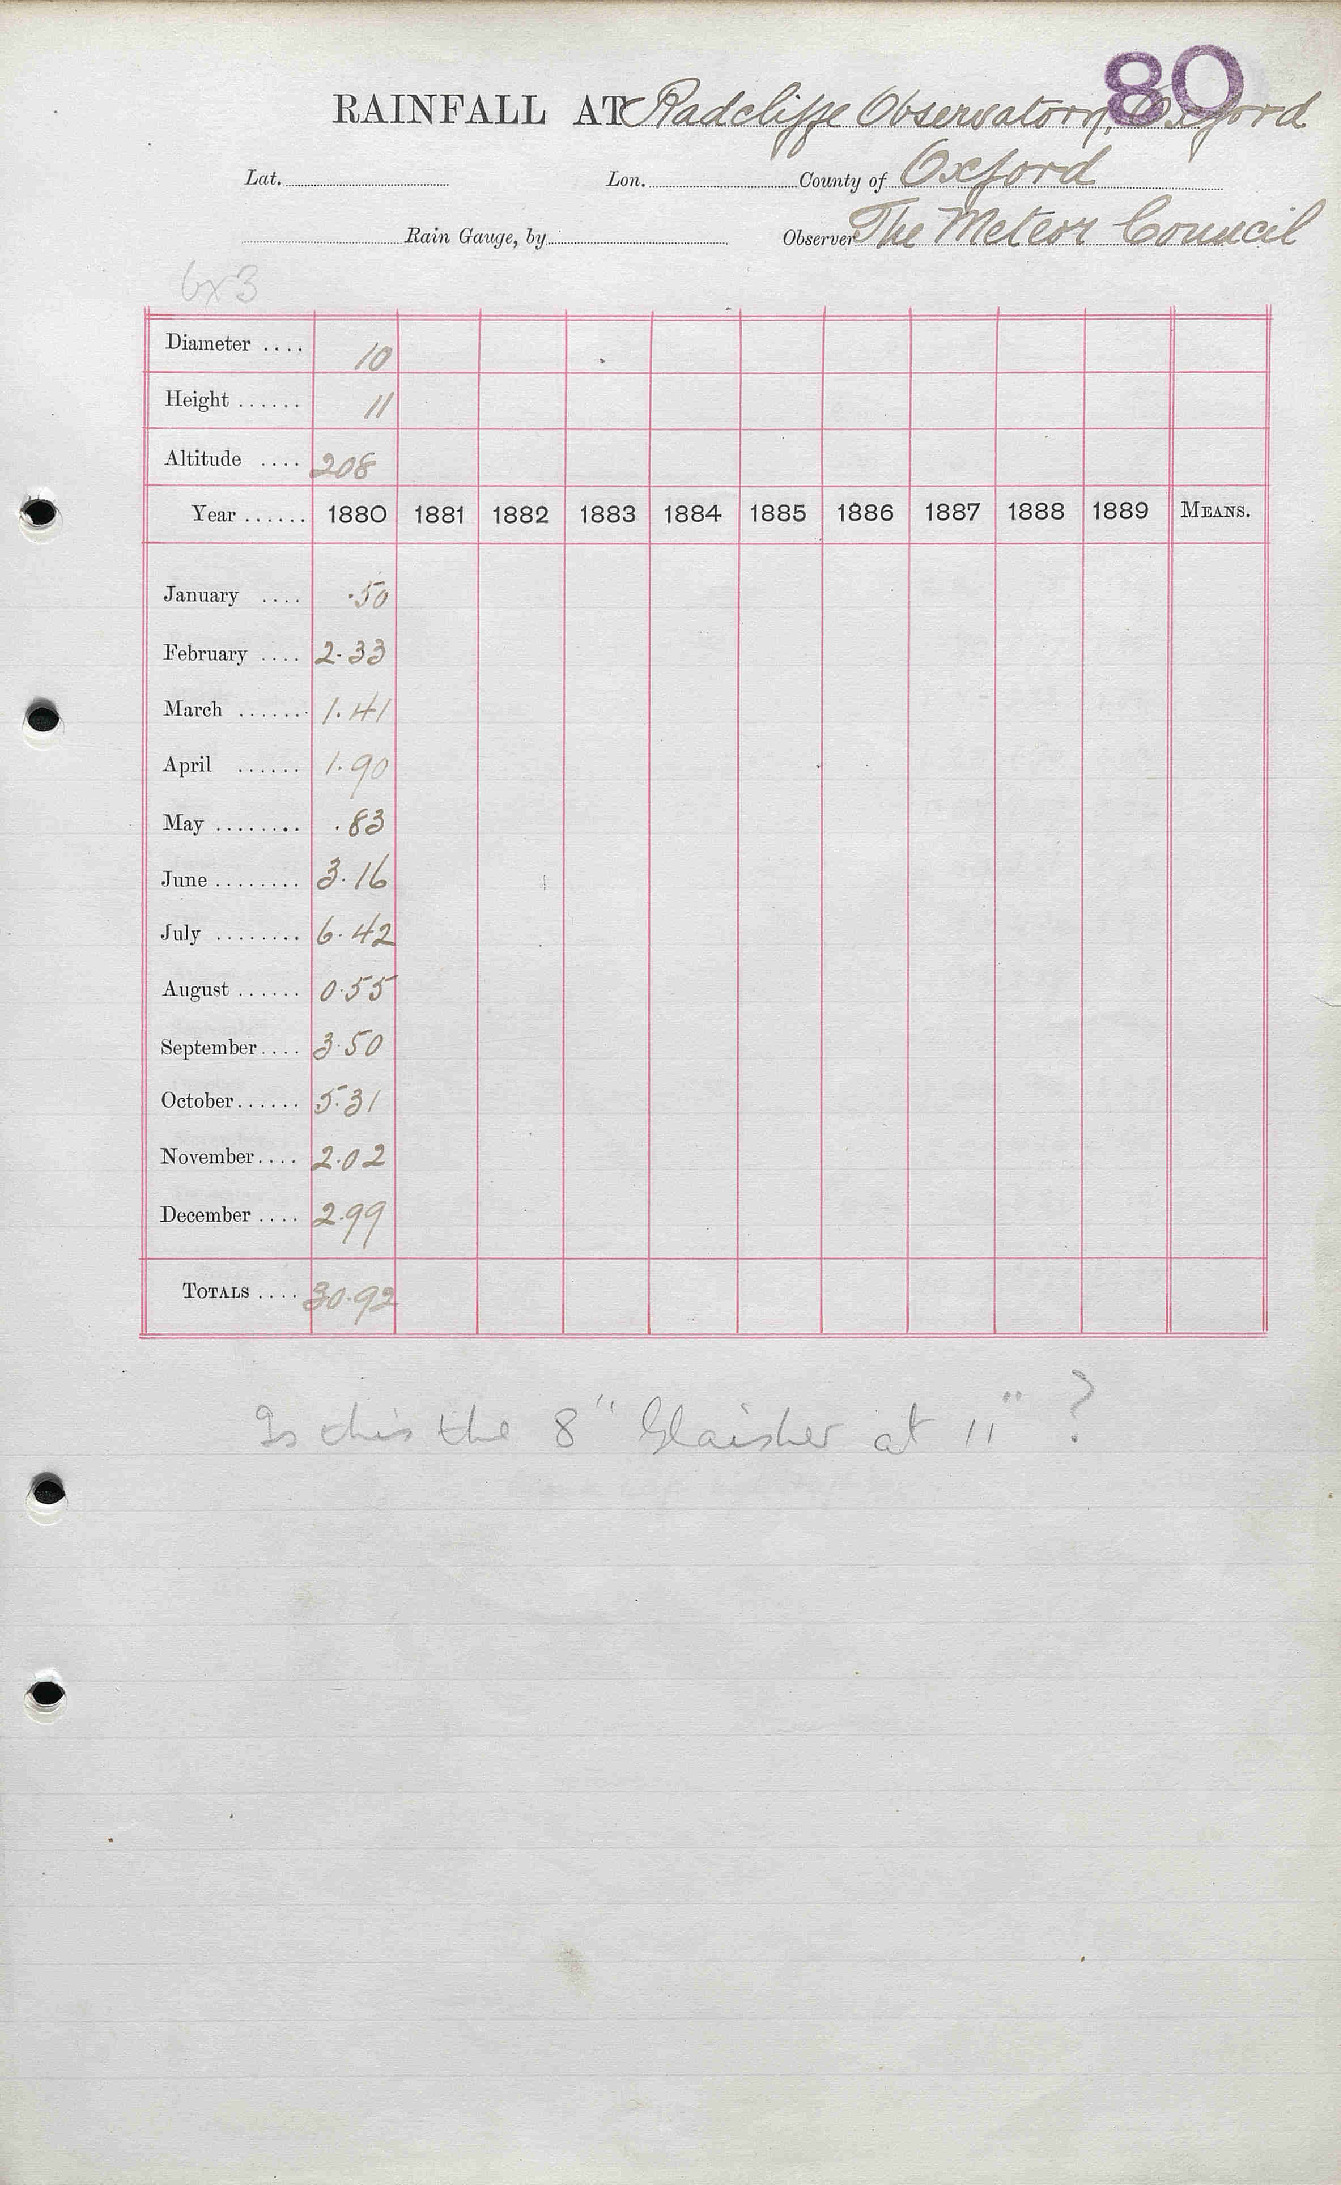 80
RAINFALL AT Radcliffe Observatory, Oxford
Lat. Lon. County of Oxford
Rain Gauge, by Observer The Meteor Council
6x3
Diameter .... 10
Height ...... 11
Altitude .... 208
Year ...... 1880 1881 1882 1883 1884 1885 1886 1887 1888 1889 MEANS.
January .... .50
February .... 2.33
March ...... 1.41
April ...... 1.90
May ........ .83
June ........ 3.16
July ........ 6.42
August ...... 0.55
September .... 3.50
October ...... 5.31
November .... 2.02
December .... 2.99
TOTALS .... 30.92
Is this the 8" Glaisher at 11" ?